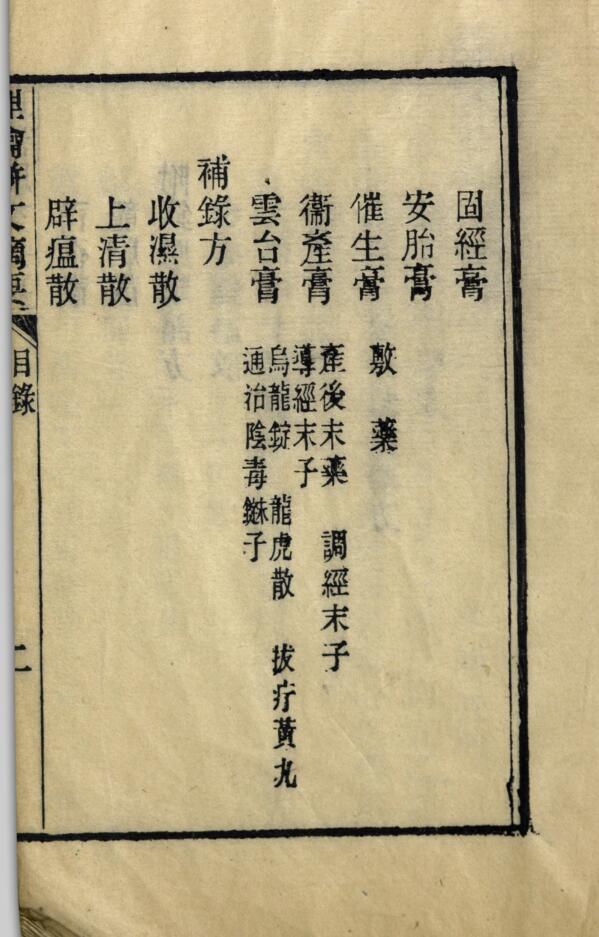 固經膏
安胎膏
催生膏 敷 藥
衞產膏 產後末藥 調經末子
導經末子
雲台膏 烏龍錠 龍虎散 拔疔黃丸
通治陰毒 子
補錄方
收濕散
上清散
辟瘟散
理瀹騈文摘要
目錄
二